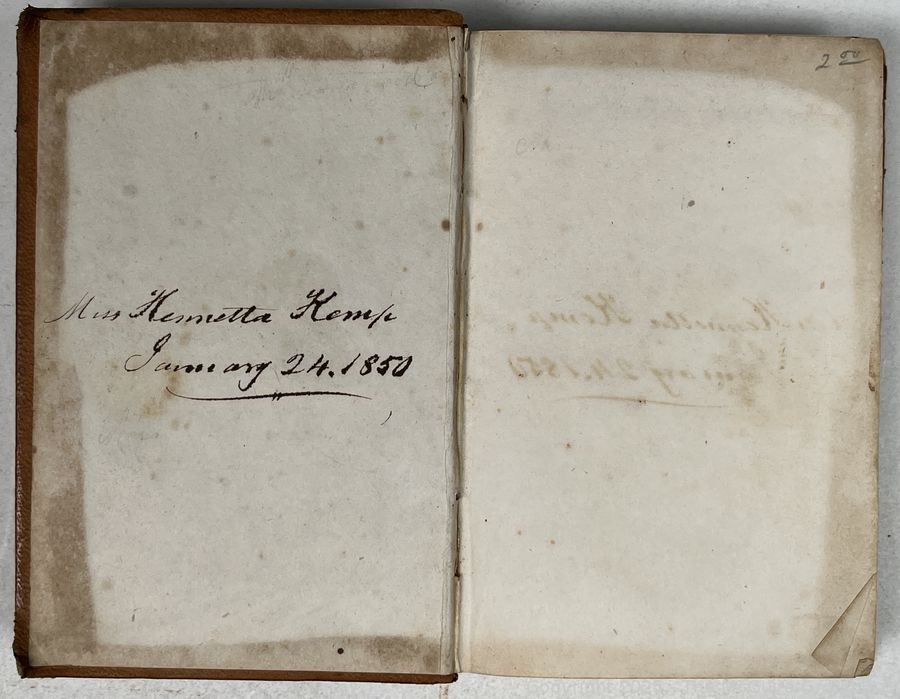 Miss Hennetta Kemp
January 24. 1850
2 50